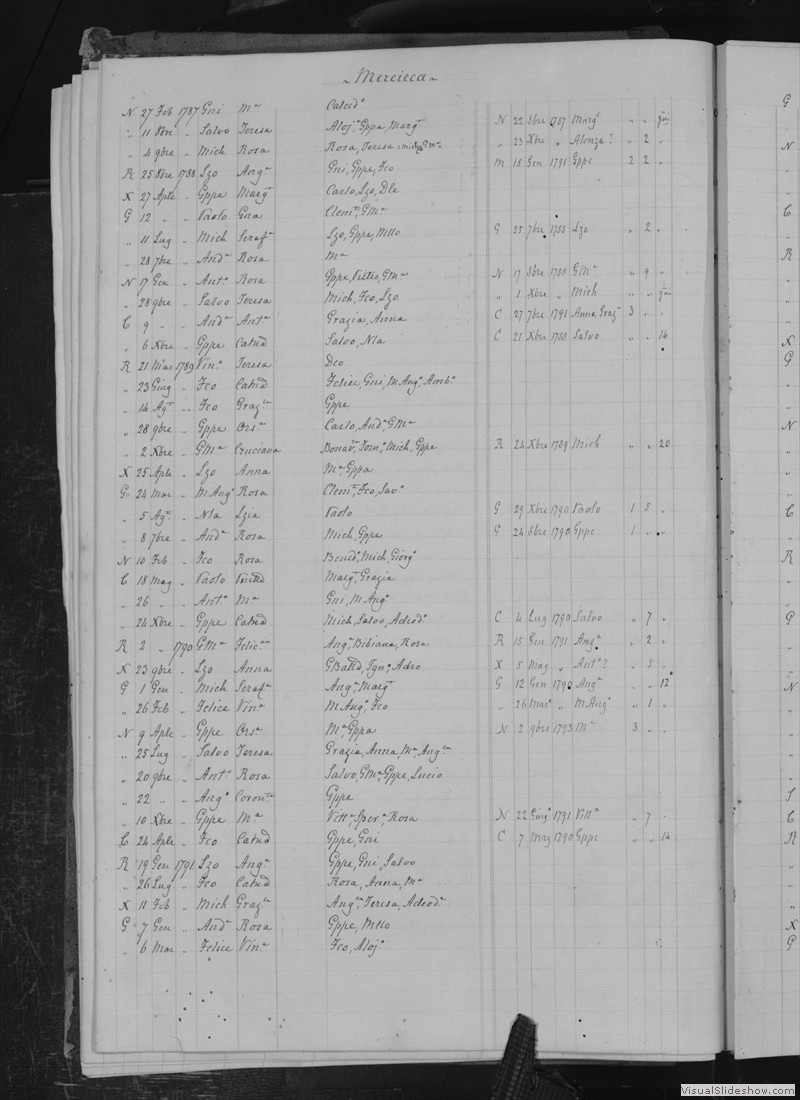 Mercieca
N 27 Feb 1787 Gni Mª Calcidº
„ 11 8bre „ Salvo Teresa Alojª, Gppa, Margª N 22 8bre 1787 Margª „ „
„ 4 9bre „ Mich Rosa Rosa, Teresa „ 23 Xbre „ Alonza? „ 2 „
R 25 8bre 1788 Lzo Angª Gni, Gppe, Fco M 18 Gen 1791 Gppe 2 2 „
X 27 Aple „ Gppe Margª Carlo, Lzo, Dle
G 12 „ „ Paolo Gna Clemª, GMª
„ 11 Lug „ Mich Serafª Lzo, Gppe, Mllo G 25 7bre 1788 Lzo „ 2 „
„ 28 7bre „ Andª Rosa Mª
N 17 Gen „ Antº Rosa Gppe, Pietro, GMª N 17 8bre 1788 GMª „ 9 „
„ 28 9bre „ Salvo Teresa Mich, Fco, Lzo „ 1 Xbre „ Mich „ „
C 9 „ „ Andª Antª Grazia, Anna C 27 7bre 1791 Anna Grazª 3 „ „
„ 6 Xbre „ Gppe Catnd Salvo, Nla C 21 Xbre 1788 Salvo „ „ 14
R 21 Mar 1789 Vinº Teresa Dco
„ 23 Giug „ Fco Catnd Felice, Gni, M Angª, Ambº
„ 14 Agº „ Fco Grazª Gppe
„ 28 9bre „ Gppe Orsª Carlo, Andª, GMª
„ 2 Xbre „ GMª Cruciana Bonavª, Tomº, Mich, Gppe R 24 Xbre 1789 Mich „ „ 20
X 25 Aple „ Lzo Anna Mª, Gppa
G 24 Mar „ M Angº Rosa Clemª, Fco, Savº
„ 5 Agº „ Nla Lzia Paolo G 29 Xbre 1790 Paolo 1 5 „
„ 8 7bre „ Andª Rosa Mich, Gppe G 24 8bre 1790 Gppe 1 „ „
N 10 Feb „ Fco Rosa Benedº, Mich, Giorgº
C 18 Mag „ Paolo Margª, Grazia
„ 26 „ „ Antº Mª Gni, M Angº
„ 24 Xbre „ Gppe Catnd Mich, Salvo, Adeodº C 4 Lug 1790 Salvo „ 7 „
R 2 „ 1790 GMª Felicª Angª, Bibiana, Rosa R 15 Gen 1791 Angª „ 2 „
X 23 9bre „ Lzo Anna GBatta, Ignº, Adeo X 5 Mag „ Antº? „ 5 „
G 1 Gen „ Mich Serafª Angª, Margª G 12 Gen 1790 Angª „ „ 12
„ 26 Feb „ Felice Vinª M Angº, Fco „ 26 Mar „ M Angº „ 1 „
N 9 Aple „ Gppe Orsª Mª, Gppa N 2 9bre 1793 Mª 3 „ „
„ 25 Lug „ Salvo Teresa Grazia, Anna, Mª, Angª
„ 20 9bre „ Antº Rosa Salvo, GMª, Gppe, Lucio
„ 22 „ „ Angº Coronª Gppe
„ 10 Xbre „ Gppe Mª Vittª, Sperª, Rosa N 22 Giugº 1791 Vittª „ 7 „
C 24 Aple „ Fco Catnd Gppe, Gni C 7 Mag 1790 Gppe „ „ 14
R 19 Gen 1791 Lzo Angª Gppe, Gni, Salvo
„ 26 Lug „ Fco Catnd Rosa, Anna, Mª
X 11 Feb „ Mich Grazª Angª, Teresa, Adeodª
G 7 Gen „ Andª Rosa Gppe, Mllo
„ 6 Mar „ Felice Vinª Fco, Alojª
VisualSlideshow.com